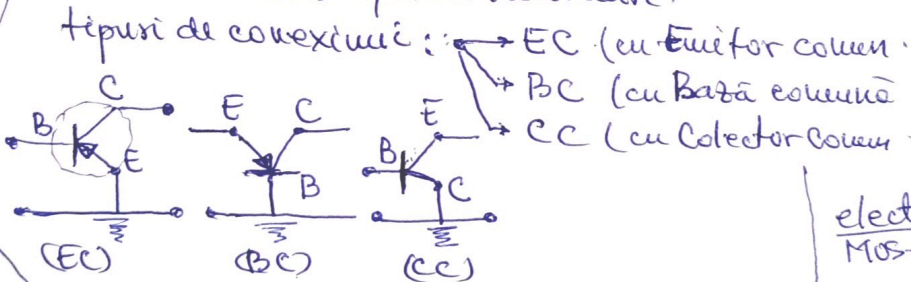 tipuri de conexiuni : → EC (cu Emitor comun.
→ BC (cu Bază comună
→ CC (cu Colector Comun
C
B
E
E
C
B
E
B
C
(EC)
(BC)
(CC)
elect
MOS-